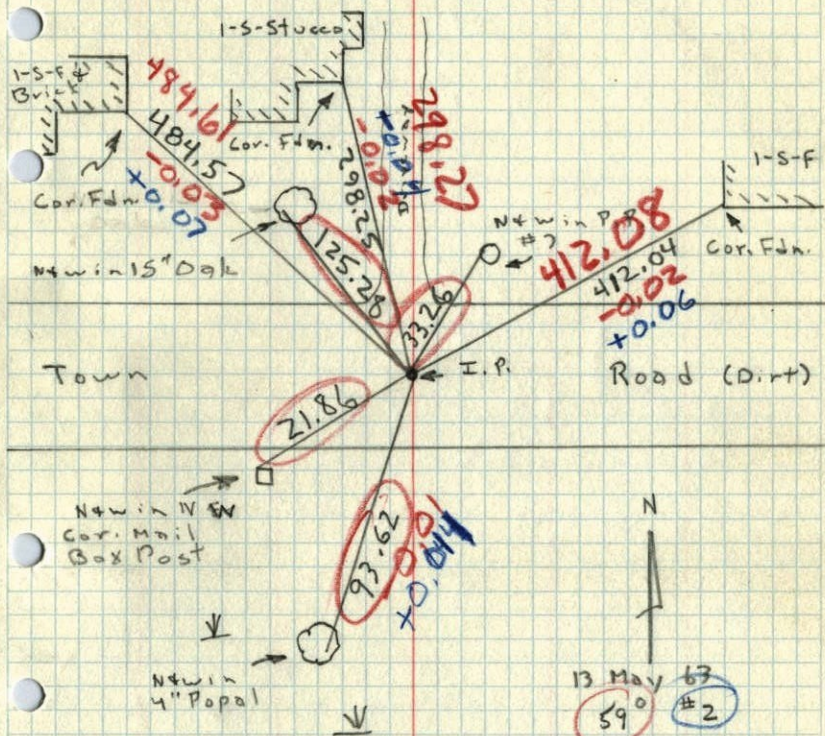 1-S-Stucco
1-S-F &
Brick
484.61
484.57
-0.03
+0.07
Cor. Fdn.
Cor. Fdn.
298.25
-0.02
+0.04
298.27
1-S-F
Cor. Fdn.
N&W in P.P.
#7
412.08
412.04
-0.02
+0.06
N&W in 15" Oak
125.28
33.26
I.P.
Town
Road (Dirt)
21.86
N&W in NW
Cor. Mail
Box Post
93.62
0.01
+0.014
N
N&W in
4" Popal
13 May 63
59°
#2